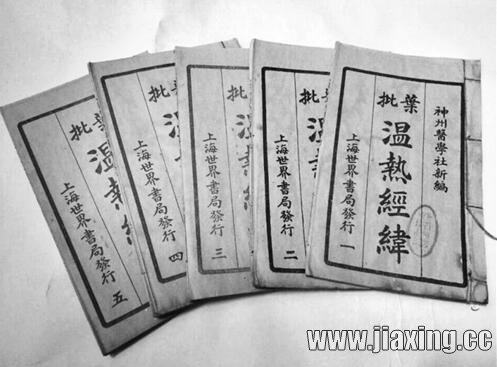 神州醫學社新編
葉批
温熱經緯
上海世界書局發行 一
葉批
温熱
上海世界書局發行 二
葉批
温
上海世界書局發行 三
葉批
温
上海世界書局發行 四
葉批
温熱
上海世界書局發行 五
www.jiaxing.cc